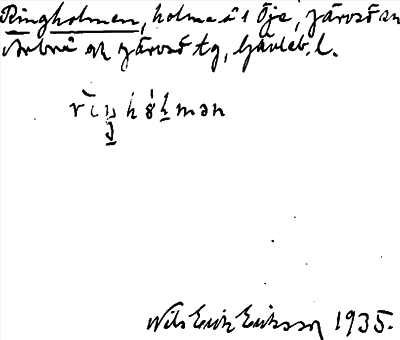 Ringholmen, holme i Öje, Järvsö sn
Arbrå ok Järvsö tg, Gävleb. l.
Nils Erik Eriksson 1935.